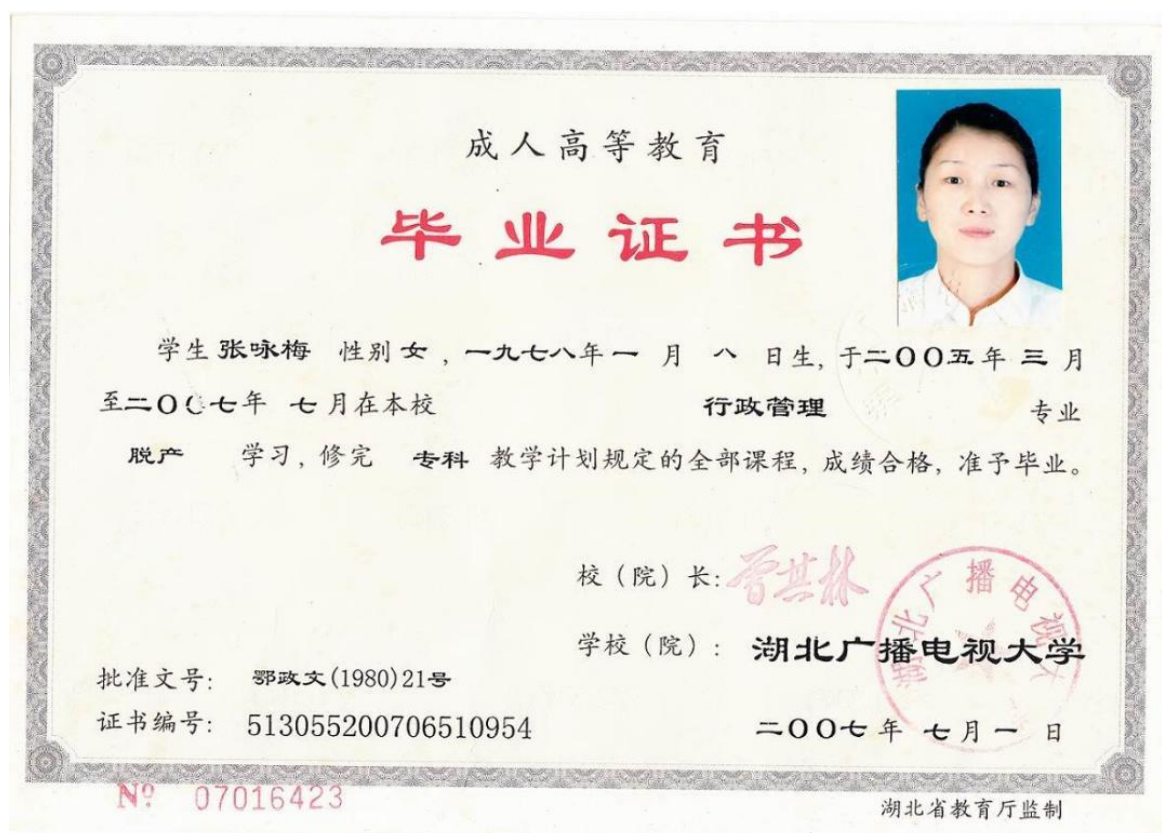 成人高等教育
毕业证书
学生 张咏梅 性别 女 , 一九七八年 一 月 八 日生, 于二〇〇五年 三 月
至二〇〇七年 七 月在本校 行政管理 专业
脱产 学习, 修完 专科 教学计划规定的全部课程, 成绩合格, 准予毕业。
校(院)长: 曾其林
学校(院): 湖北广播电视大学
湖北广播电视大
批准文号: 鄂政文(1980)21号
证书编号: 513055200706510954
二〇〇七年 七月 一 日
Nº 07016423
湖北省教育厅监制